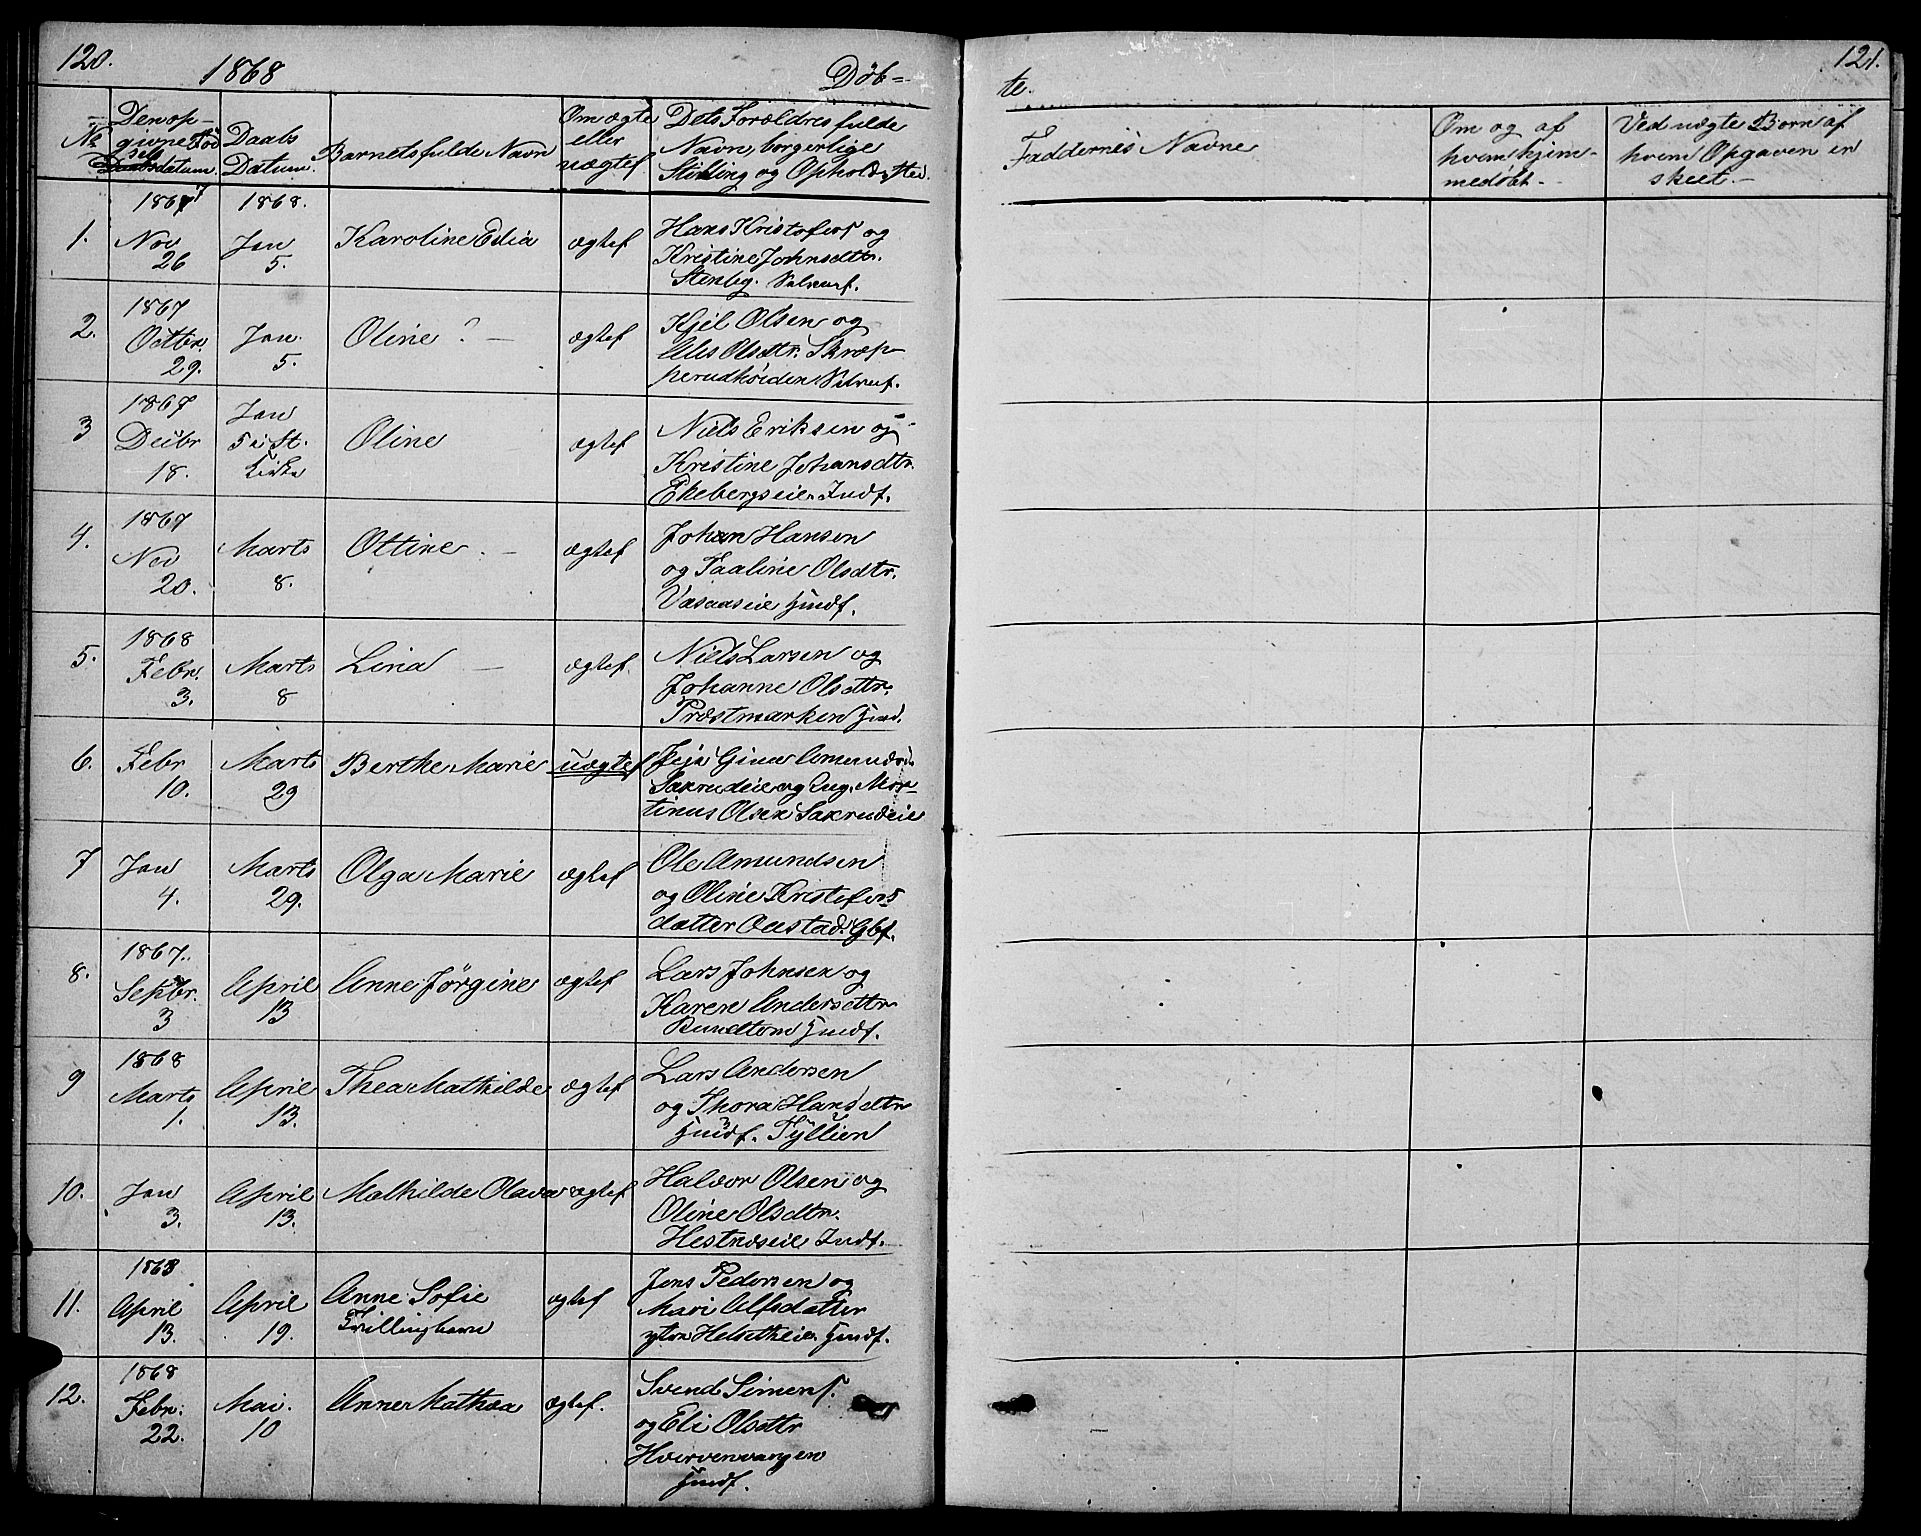 120.
1868
Døb=
Den op-
No givne Fød
sels
datum.
Daabs
Datum.
Barnets fulde Navn
Om ægte
eller
uægtef.
Dets Forældres fulde
Navn, borgerlige
Stilling og Opholdssted.
1867 1868.
1. Nov 26 Jan 5. Karoline Edia ægtef
Hans Kristofers og
Kristine Johnsdttr.
Stenbeg.
1867
2. Octbr. 29. Jan. 5. Oline ? — ægtef
Kjel Olsen og
Olsdttr. Skræp-
perudhöiden
1867
3 Decbr 18. Jan 5 i St. Kirke Oline ægtef
Niels Eriksen og
Kristine Johansdtr.
Ekebergseie Indf.
1867
4. Nov 20. Marts 8. Ottine. — ægtef
Johan Hansen
og Paaline Olsdtr.
Vasaaseie Huusf.
1868
5. Febr. 3. Marts 8 Lina — ægtef.
Niels Larsen og
Johanne Olsdttr.
Præstmarken
6. Febr 10. Marts 29 Berthe Marie uægtef
Pige Gina Amundsd.
Sakrudeie og Ung. Mar-
tinus Olsen Sakrudeie
7 Jan 4. Marts 29. Olga Marie ægtef
Ole Amundsen
og Oline Kristofers
datter Oustad. Gbf.
1867.
8. Septbr. 3 April 13 Anne Jörgine ægtef
Lars Johnsen og
Karen Andersdttr
Huusf.
1868
9 Marts 1. April 13. Thea Mathilde ægtef
Lars Andersen
og Thora Hansdttr
Huusf. Tyllien
10. Jan 3. April 13. Mathilde Olava ægtef.
Halvor Olsen og
Oline Olsdtr.
Hestnæseie Indf.
1868
11. April 13. April 19. Anne Sofie
Tvillingbarn ægtef
Jens Pedersen og
Mari Alfsdatter
ytre Helsetheie. Huusf.
1868
12. Febr: 22. Mai. 10 Anne Mathea ægtef.
Svend Simens.
og Eli Olsdttr
Hvervenvangen
Huusf.
121.
te.
Faddernes Navne
Om og af
hvem hjem-
medøbt —
Ved uægte Børn af
hvem Opgaven er
skeet. —